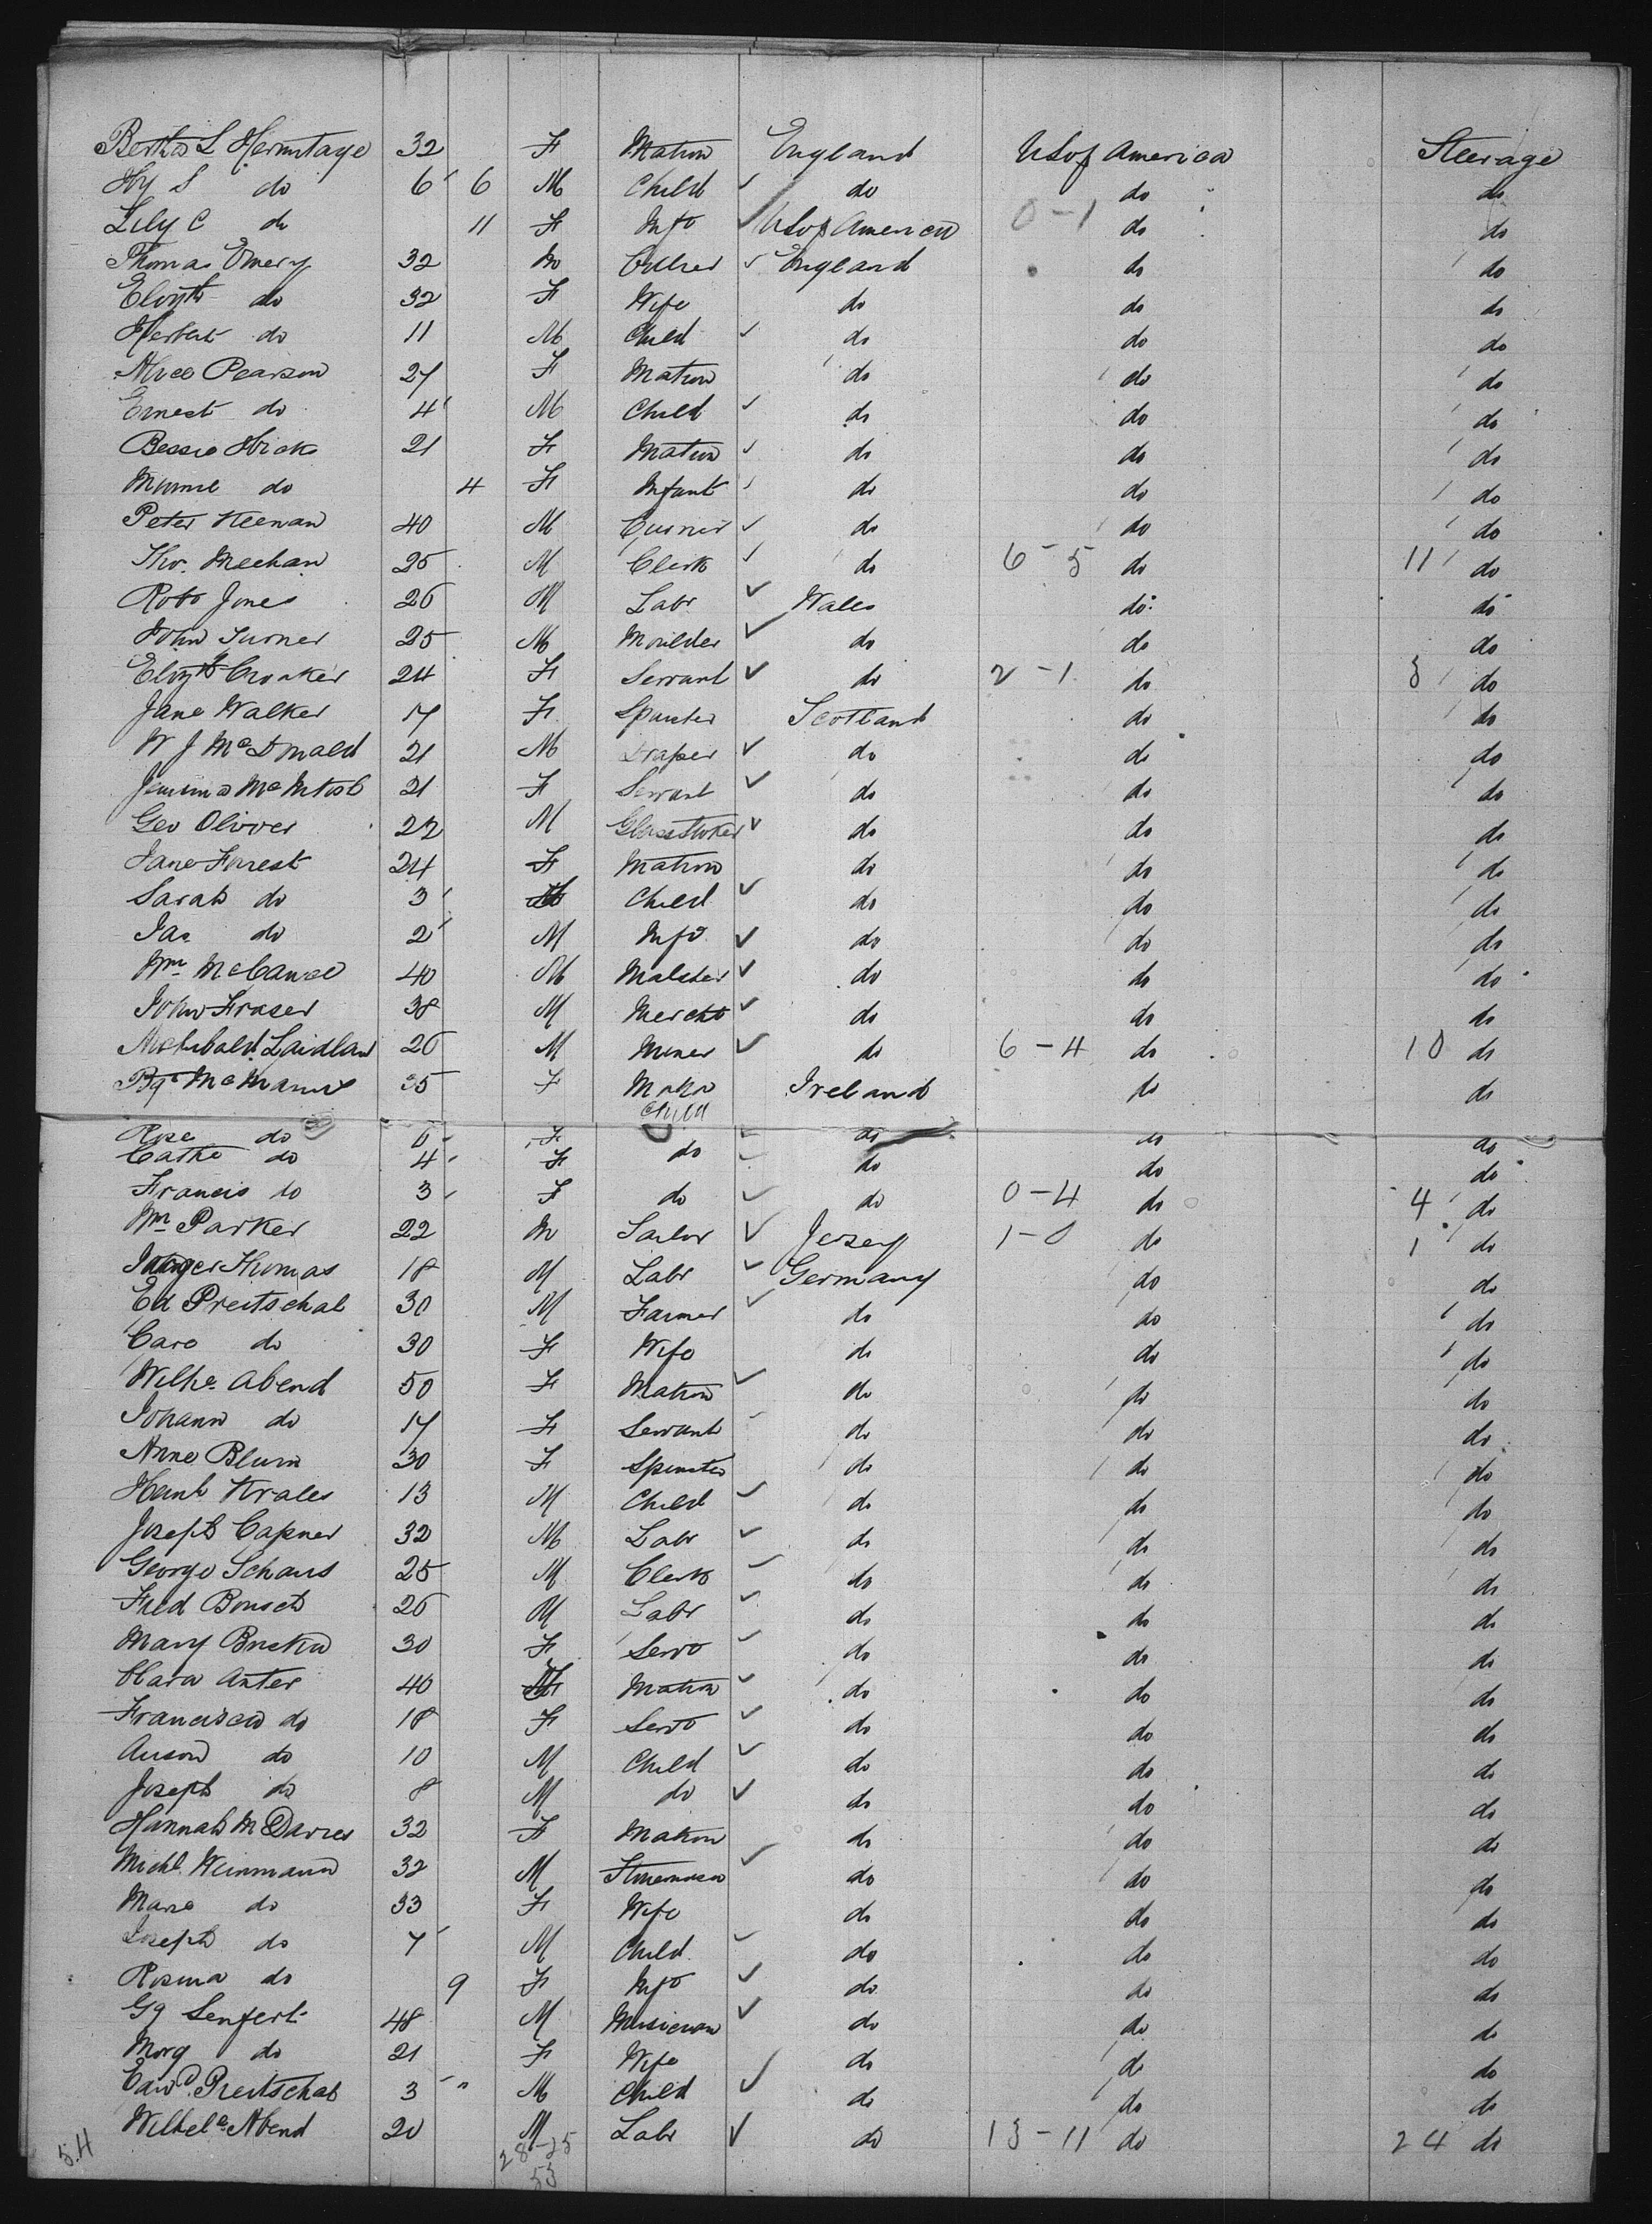 Bertha L Hermitage 32 F Matron England US of America Steerage
Hy S do 6 6 M Child do do do
Lily C do 11 F Inft US of America 0-1 do do
Thomas Emery 32 M England do do
Elizth do 32 F Wife do do do
Herbert do 11 M Child do do do
Alice Pearson 27 F Matron do do do
Ernest do 4 M Child do do do
Bessie Hicks 21 F Matron do do do
Minnie do 4 F Infant do do do
Peter Keenan 40 M do do do
Tho. Meehan 25 M Clerk do 6-5 do 11 do
Robt Jones 26 M Labr Wales do do
John Turner 25 M Moulder do do do
Elizth Croaker 24 F Servant do 2-1 do 3 do
Jane Walker 17 F Spinster Scotland do do
W J McDonald 21 M Draper do do do
Jemima McIntosh 21 F Servant do do do
Geo Oliver 22 M do do do
Jane Forrest 24 F Matron do do do
Sarah do 3 Child do do do
Jas do 2 M Inft do do do
Wm McCance 40 M Malster do do do
John Fraser 38 M Mercht do do do
Archibald Laidlaw 26 M Miner do 6-4 do 10 do
Bgt McManus 35 F Matn Ireland do do
Child
Rose do 6 F do do do
Cathe do 4 F do do do do
Francis do 3 F do do 0-4 do 4 do
Wm Parker 22 M Sailor Jersey 1-0 do 1 do
Thomas 18 M Labr Germany do do
Ed Preitschat 30 M Farmer do do do
Caro do 30 F Wife do do do
Wilhe Abend 50 F Matron do do do
Johann do 17 F Servant do do do
Anne Blum 30 F Spinster do do do
Heinh Krales 13 M Child do do do
Joseph Capner 32 M Labr do do do
George Schaus 25 M Clerk do do do
Fred Bonsch 26 M Labr do do do
Mary 30 F Servt do do do
Clara Anter 40 F Matron do do do
Francisca do 18 F Servt do do do
Anson do 10 M Child do do do
Joseph do 8 M do do do do
Hannah M Davies 32 F Matron do do do
Michl Weinmann 32 M Stonemason do do do
Marie do 33 F Wife do do do
Joseph do 7 M Child do do do
Rosina do 9 F Inft do do do
Gg Senfert 48 M Musician do do do
Marg do 21 F Wife do do do
Edwd Preitschat 3 " M Child do do do
Wilhele Abend 20 M Labr do 13-11 do 24 do
54 28-25
53